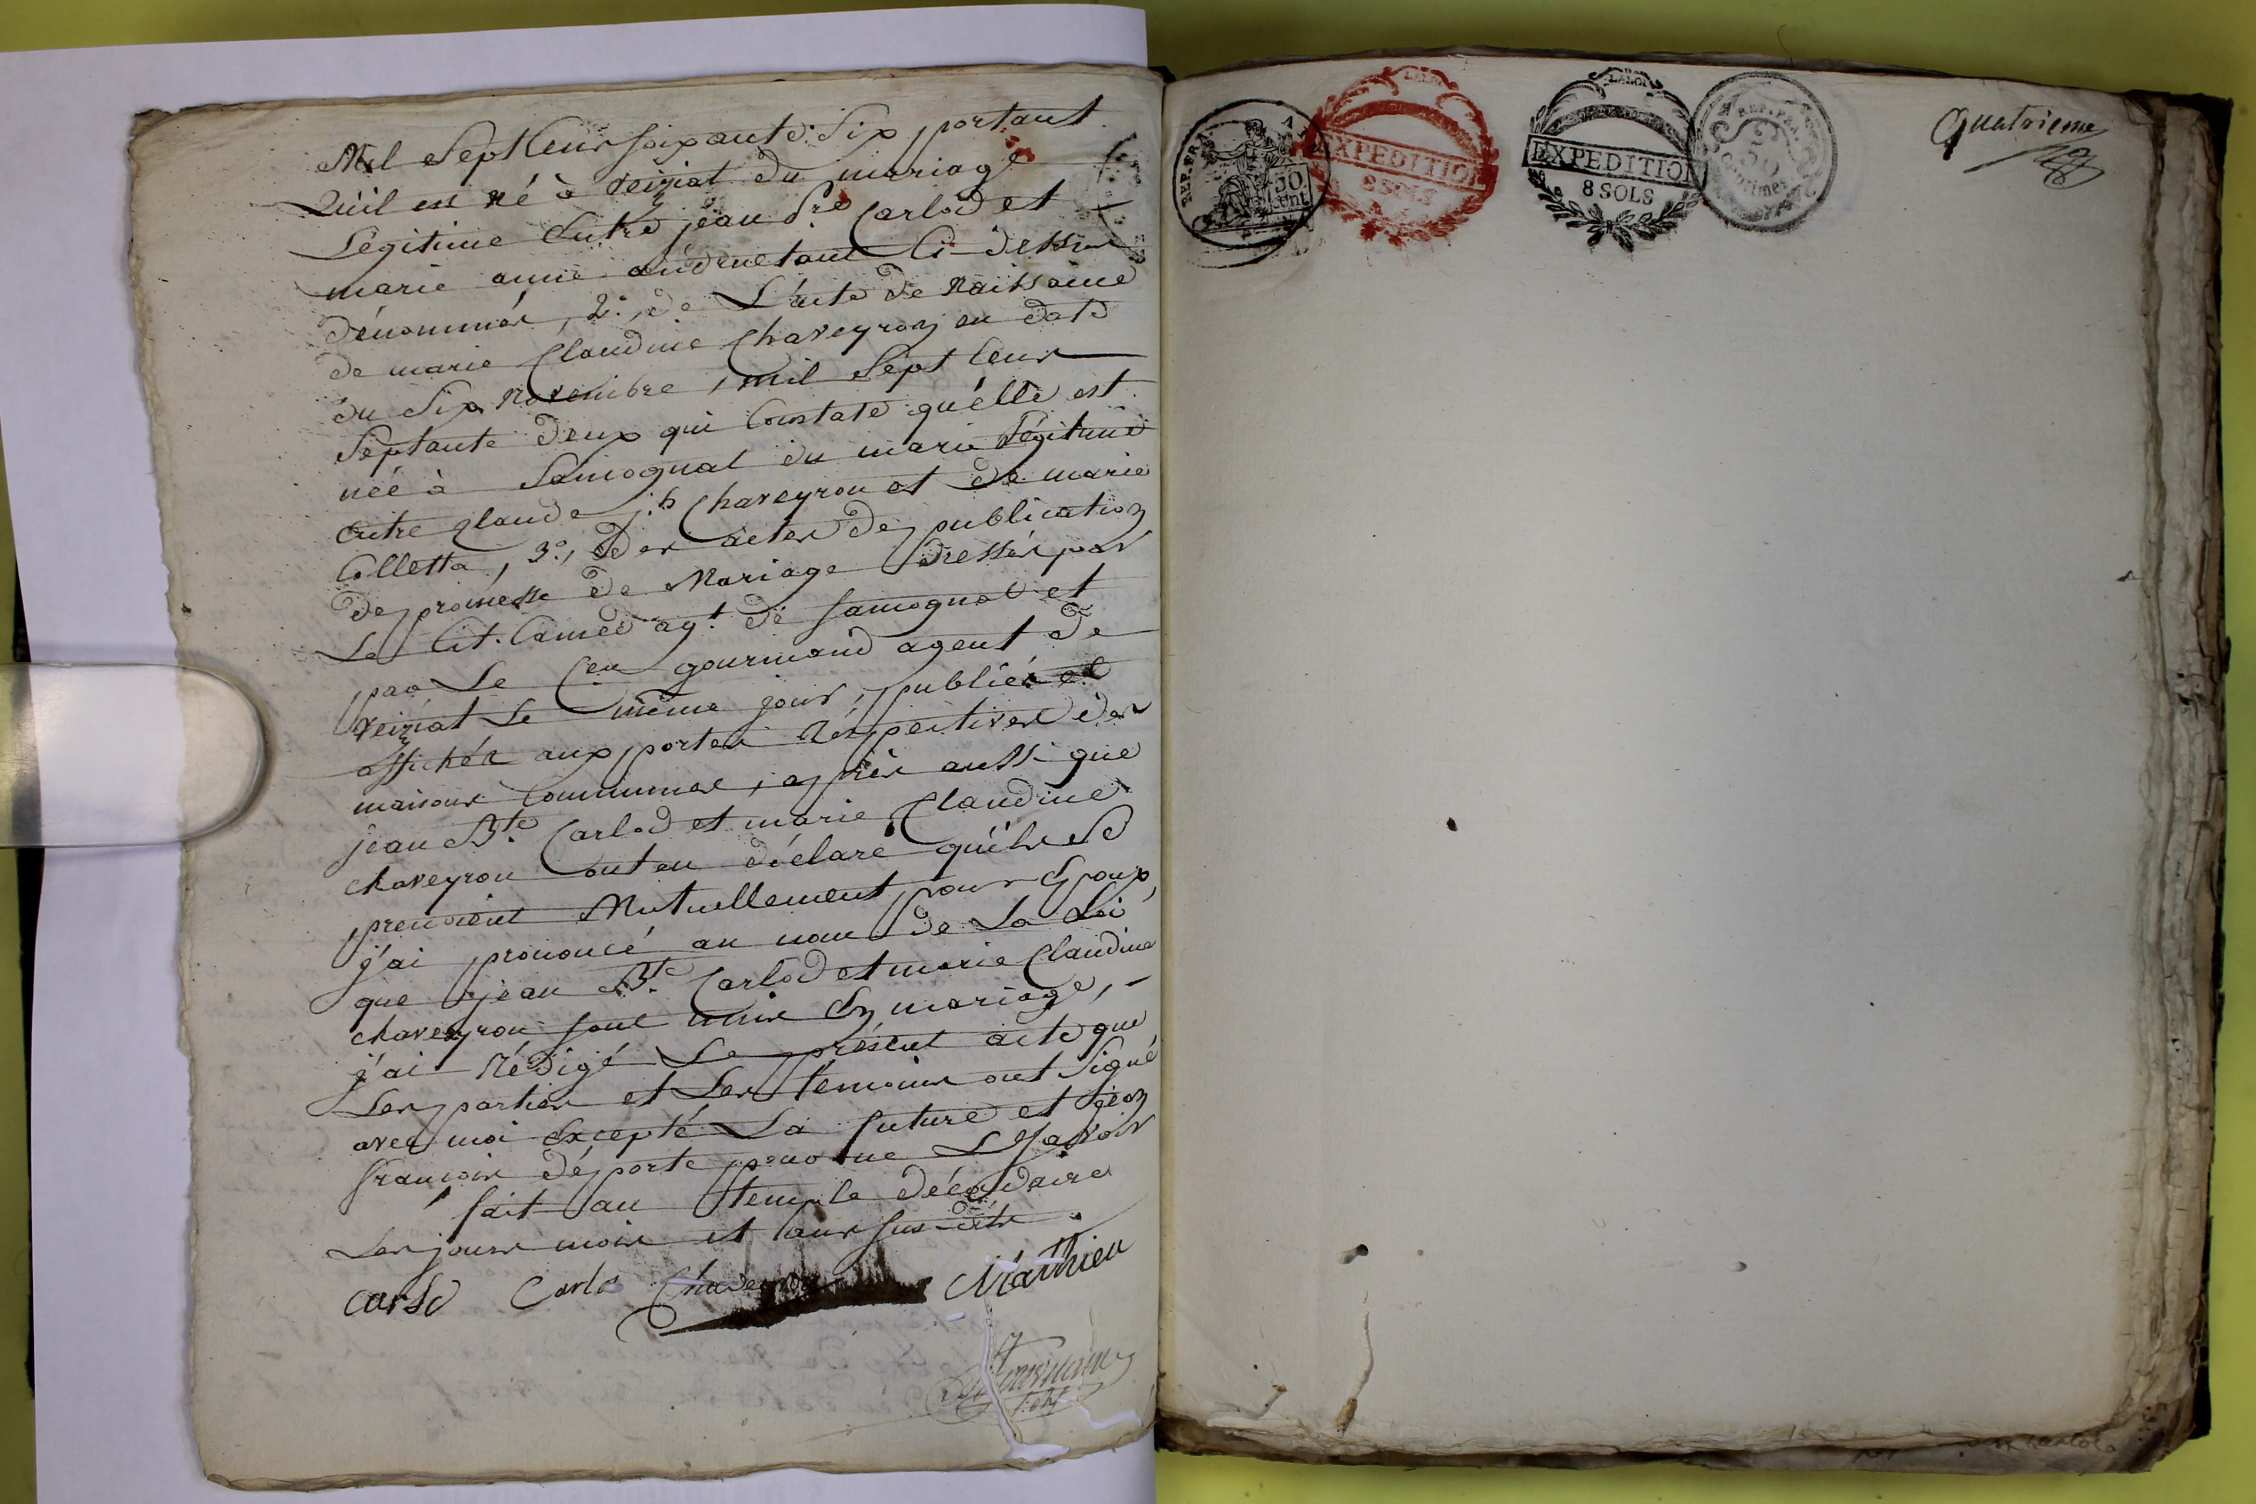 Mil Sept Cens soixante Six, portant
Qu'il est né à veiziat du mariage
Légitime Entre jean Frs Carlod et
marie anne Ci-dessus
dénommés, 2°, de L'acte de Naissance
de marie Claudine Chaveyron en date
du Six Novembre, mil Sept Cens
Septante deux qui Constate qu'élle est
née à Samognat du marie Légitime
Entre Claude jh Chaveyron et de marie
Colletta, 3°, des actes de publication
de promesse de Mariage dressés par
Le Cit. Camed agt de Samognat et
par Le Cen gourmand agent de
veiziat Le même jour, publiés et
affichés aux portes Réspectives des
maisons Communes, après aussi que
jean Bte Carlod et marie Claudine
chaveyron ont eu déclaré qu'ils Se
prenoient Mutuellement pour Epoux,
j'ai prononcé au nom de La Loi,
que jean Bte Carlod et marie Claudine
chaveyron sont unis En mariage, -
j'ai Rédigé Le présent acte que
Les parties et Les témoins ont Signé
avec moi Excepté La future et jean
françois déporte pour ne Le Savoir
fait au temple décadaire
Les jours mois et ans sus-dits.
carlo Carlo Chaveyron Mathieu
REP. FRA.
50
cent
LA LOI
EXPEDITION
8 SOLS
LA LOI
EXPEDITION
8 SOLS
REP. FRA.
50
Centimes
Quatrieme